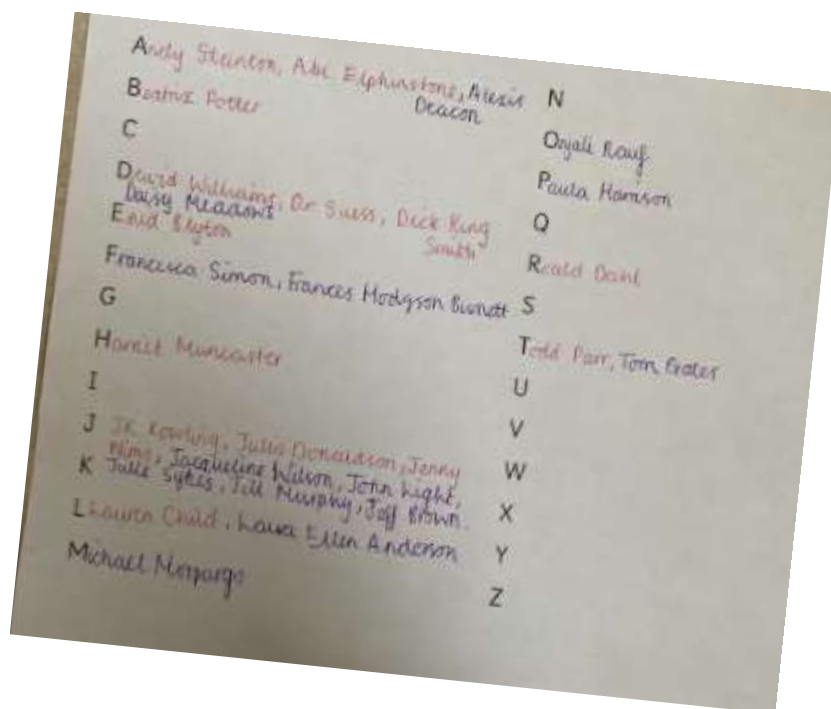 Andy Stanton, Abi Elphinstone, Alexis
Deacon
Beatrix Potter
C
David Williams, Dr Suess, Dick King
Smith
Daisy Meadows
Enid Blyton
Francesca Simon, Frances Hodgson Burnett
G
Harriet Muncaster
I
J JK Rowling, Julia Donaldson, Jenny
Nimmo, Jacqueline Wilson, John Light,
K Julie Sykes, Jill Murphy, Jeff Brown
L Lauren Child, Laura Ellen Anderson
Michael Morpurgo
N
Onjali Rauf
Paula Harrison
Q
Roald Dahl
S
Todd Parr, Tom
U
V
W
X
Y
Z